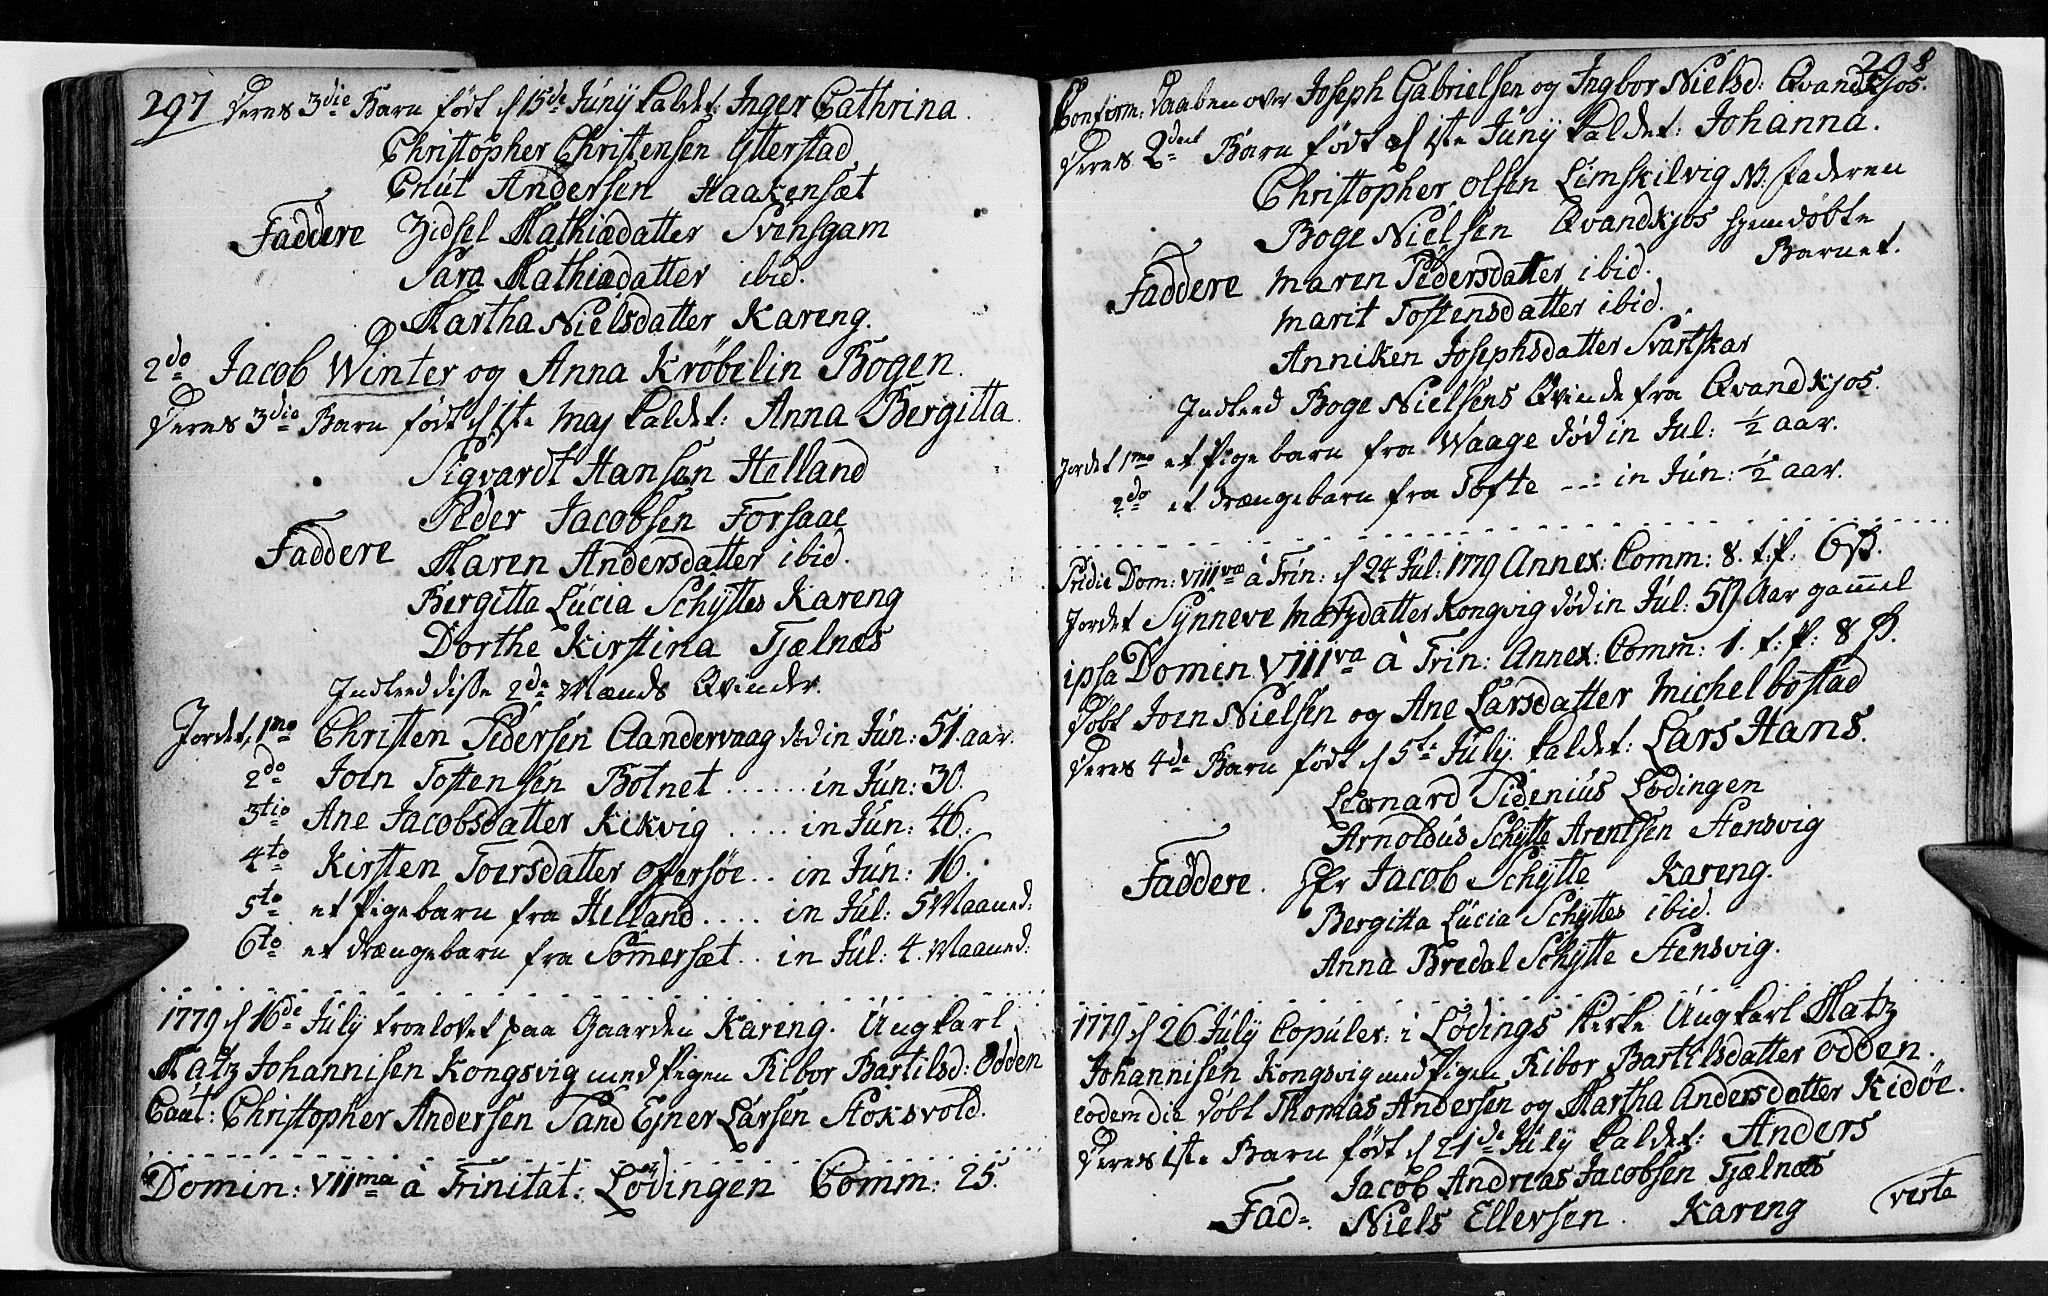 297 Deres 3die Barn født d 15de Junij kaldet: Inger Cathrina.
Christopher Christensen Ytterstad
Cnut Andersen Haakensæt
Faddere Zidsel Mathiædatter Svensgam
Sara Mathiædatter ibid.
Martha Nielsdatter Kareng.
2do Jacob Winter og Anna Krøbelin Bogen.
Deres 3die Barn født d 1ste Maj kaldet: Anna Bergitta.
Sigvardt Hansen Helland
Peder Jacobsen Forsaae
Faddere Maren Andersdatter ibid.
Bergitta Lucia Schyttes Kareng
Dorthe Kirstina Tjælnæs
Indleed disse 2de Mænds Qvinder.
Jordet, 1mo Christen Pedersen Aandervaag død in Jun: 51. aar.
2do Joen Tostensen Botnet ...... in Jun: 30.
3tio Ane Jacobsdatter Kikvig .... in Jun: 46.
4to Kirsten Toersdatter Offersøe .. in Jun: 16.
5to et Pigebarn fra Helland .... in Jul: 5 Maaned:
6to et drængebarn fra Sommersæt .. in Jul: 4. Maaned:
1779 d 16de July troelovet paa Gaarden Kareng. Ungkarl
Matz Johannisen Kongsvig med Pigen Kibor Bartilsd: Odden
Caut: Christopher Andersen Sand Ejner Larsen Stoksvold.
Domin: VIIma à Trinitat: Lødingen Comm: 25.
298
Confirm: Daaben over Joseph Gabrielsen og Ingbor Nielsd: Qvandkjos.
Deres 2det Barn født d 1ste Junij kaldet: Johanna.
Christopher Olsen Limskilvig NB: Faderen
Boge Nielsen Qvandkjos hjemdøbte
Barnet.
Faddere Maren Pedersdatter ibid.
Marit Tostensdatter ibid.
Anniken Josephsdatter Svartskar
Indleed Boge Nielsens Qvinde fra Qvandkjos.
Jordet 1mo et Pigebarn fra Waage død in Jul: 1/2 aar.
2do et drængebarn fra Tofte --- in Jun: 1/2 aar.
Pridie Dom: VIIIva à Trin: d 24 Jul: 1779 Annex: Comm: 8. t: p: 6 ß.
Jordet Synneve Matzdatter Kongvig død in Jul: 59 Aar gammel
ipsa Domin VIIIva à Trin: Annex: Comm: 1. t: p: 8 ß.
Døbt Joen Nielsen og Ane Larsdatter Michelbostad
Deres 4de Barn født d 5te July kaldet: Lars Hans.
Leonard Sidenius Lødingen
Arnoldus Schytte Arentsen Stensvig
Faddere. Hr Jacob Schytte Kareng.
Bergitta Lucia Schyttes ibid.
Anna Bredal Schytte Stensvig.
1779 d 26 July Copuler: i Lødings Kirke Ungkarl Matz
Johannisen Kongsvig med Pigen Kibor Bartilsdatter Odden.
eodem die døbt Thomas Andersen og Martha Andersdatter Kidøe.
Deres 1ste Barn født d 21de July kaldet: Anders
Jacob Andreas Jacobsen Tjælnæs
Fad: Niels Ellersen. Kareng
verte